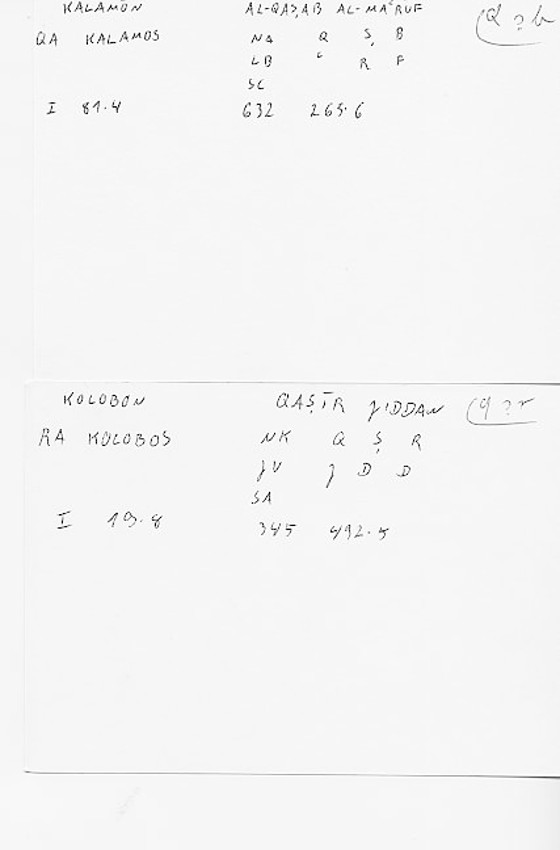 KALAMŌN AL-QAṢAB AL-MAʿRUF
QA KALAMOS NA Q Ṣ B
LB ʿ R F
SC
I 81.4 632 265.6
KOLOBON QAṢĪR ǦIDDAN
RA KOLOBOS NK Q Ṣ R
ǦV Ǧ D D
SA
I 19.8 345 492.5